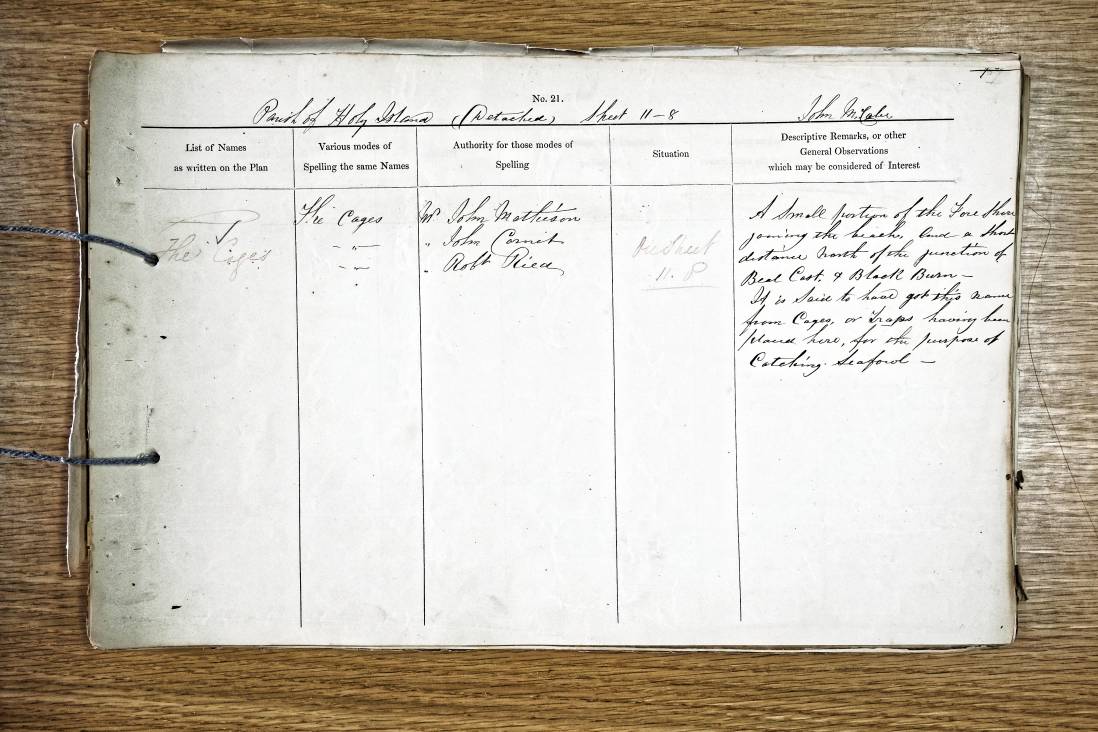 No. 21.
Parish of Holy Island (Detached) Sheet 11-8 John McCabe
List of Names
as written on the Plan
Various modes of
Spelling the same Names
Authority for those modes of
Spelling
Situation
Descriptive Remarks, or other
General Observations
which may be considered of Interest
The Cages
The Cages
Mr John Mathieson
" John Cornit
" Robt Ried
On Sheet
11. 8
A Small portion of the Fore Shore
joining the beach, and a short
distance North of the junction of
Beal Cast. & Black Burn -
It is Said to have got this name
from Cages, or Traps having been
placed here, for the purpose of
Catching Seafowl -